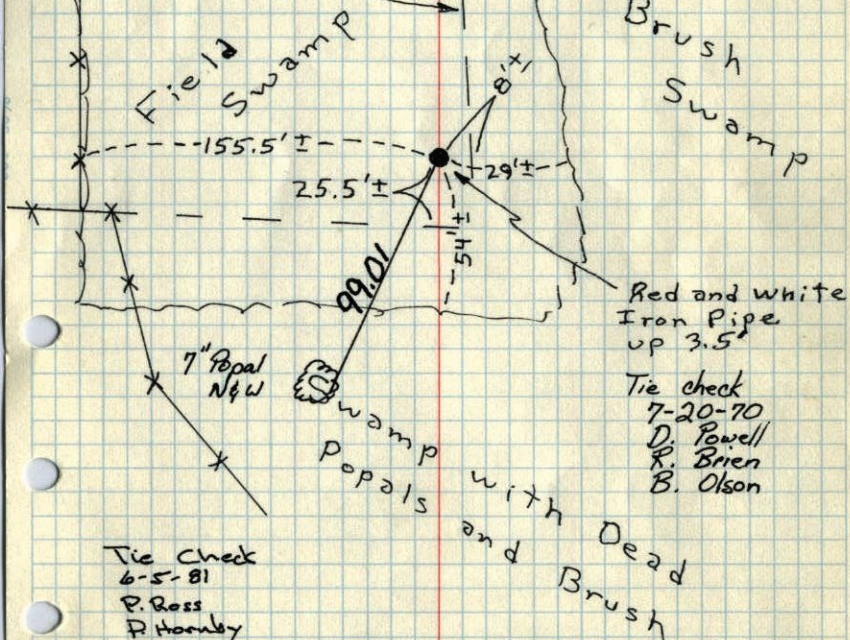 Brush
Swamp
Field
Swamp
8'±
155.5'±
29'±
25.5'±
54'±
99.01
Red and white
Iron Pipe
up 3.5'
7" Popal
N&W
Tie check
7-20-70
D. Powell
R. Brien
B. Olson
Swamp with Dead
Popals and Brush
Tie Check
6-5-81
P. Ross
P. Hornby